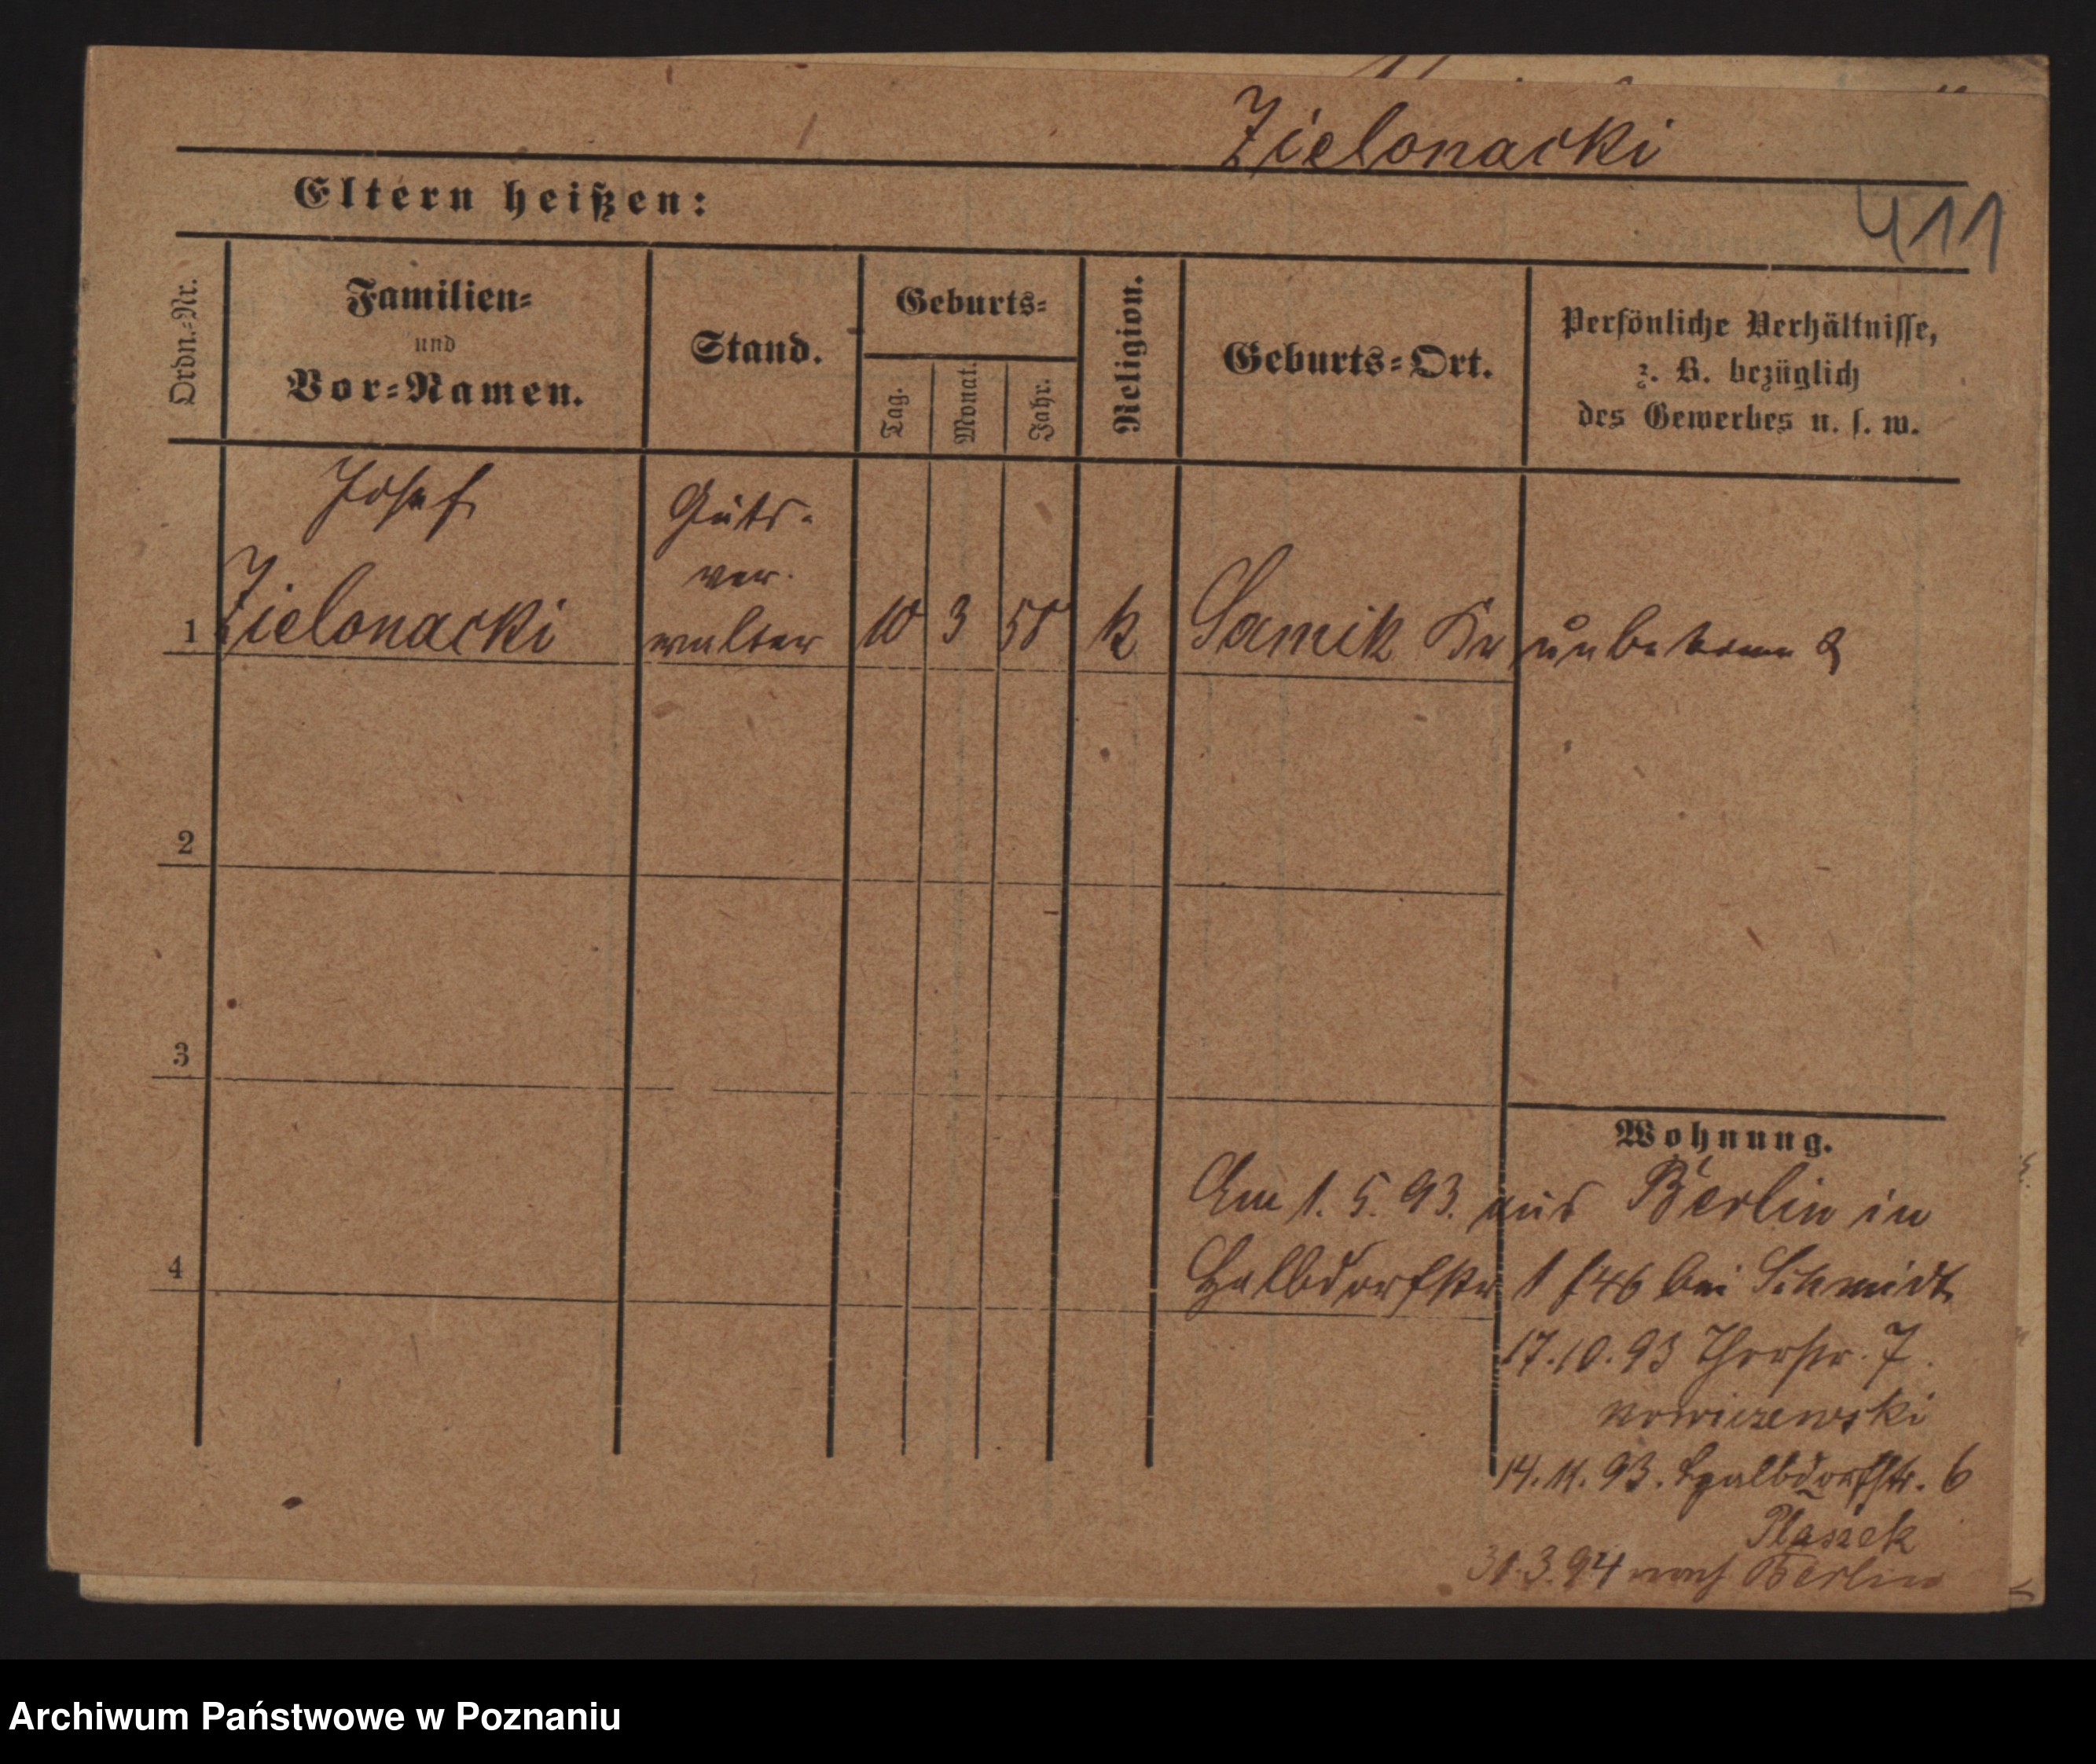 Zielonacki
Eltern heißen:
411
Ordn.-Nr.
Familien-
und
Vor-Namen.
Stand.
Geburts-
Tag.
Monat.
Jahr.
Religion.
Geburts-Ort.
Persönliche Verhältnisse,
z. B. bezüglich
des Gewerbes u. s. w.
Josef
Guts-
ver-
1 Zielonacki walter 10 3 58 k Samik Kr
2
3
4
Wohnung.
Am 1. 5. 93. aus Berlin in
Halbdorfstr 1 bei Schmidt
17.10.93 7.
14.11.93. Halbdorfstr. 6
31.3.94 nach Berlin
Archiwum Państwowe w Poznaniu